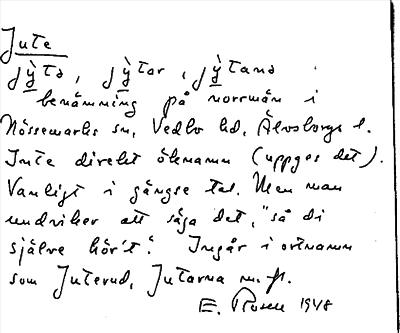 Jute
jỳtə, jỳtar, jỳtana
benämning på norrmän i
Nössemarks sn, Vedbo hd, Älvsborgs l.
Inte direkt öknamn (uppges det).
Vanligt i gängse tal. Men man
undviker att säga det, "så di
själve hör't". Ingår i ortnamn
som Juterud, Jutarna m. fl.
E. Rosén 1948